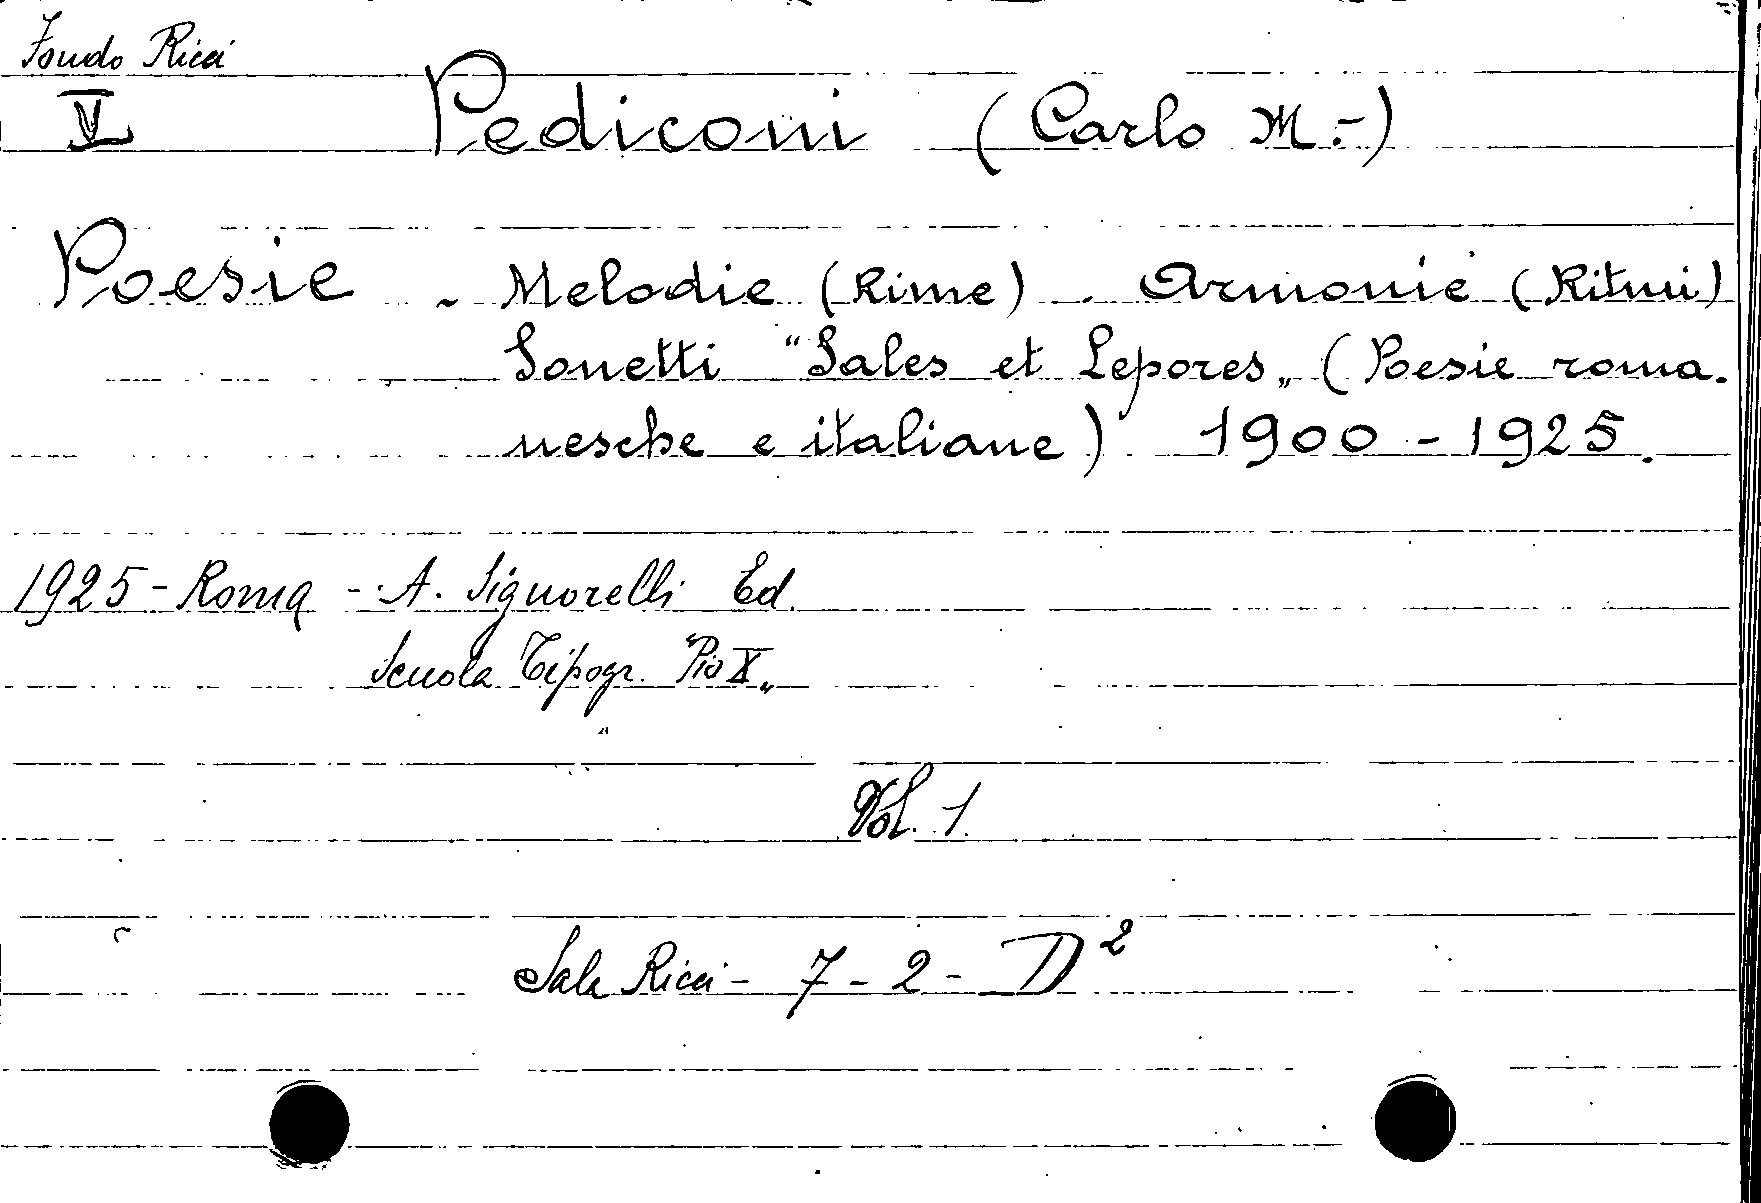 Fondo Ricci
V Pediconi (Carlo M.-)
Poesie - Melodie (Rime) - Armonie (Ritmi)
Sonetti "Sales et Lepores„ (Poesie roma-
nesche e italiane) 1900 - 1925.
1925 - Roma - A. Signorelli Ed.
Scuola Tipogr. "Pio X„
Vol. 1
Sala Ricci - 7 - 2 - D²